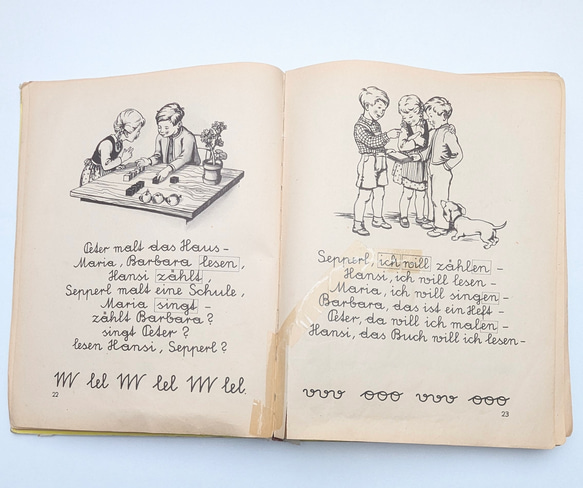 Peter malt das Haus -
Maria, Barbara lesen,
Hansi zählt,
Sepperl malt eine Schule,
Maria singt -
zählt Barbara?
singt Peter?
lesen Hansi, Sepperl?
lel lel lel.
22
Sepperl, ich will zählen -
Hansi, ich will lesen -
Maria, ich will singen -
Barbara, das ist ein Heft -
Peter, da will ich malen -
Hansi, das Buch will ich lesen -
vvv ooo vvv ooo
23